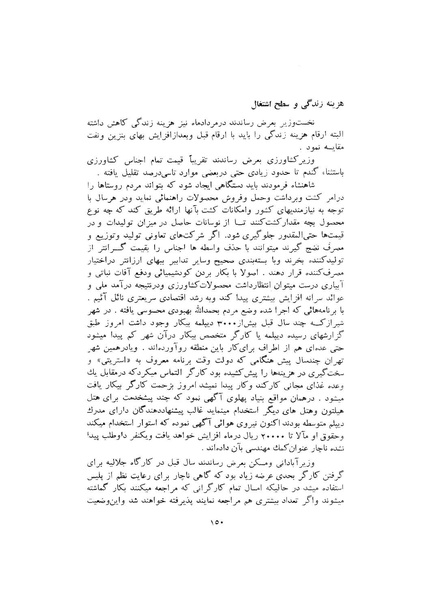 هزینه زندگی و سطح اشتغال
نخست‌وزیر بعرض رساندند درمردادماه نیز هزینه زندگی کاهش داشته
البته ارقام هزینه زندگی را باید با ارقام قبل وبعدازافزایش بهای بنزین ونفت
مقایسه نمود .
وزیرکشاورزی بعرض رساندند تقریباً قیمت تمام اجناس کشاورزی
باستثناء گندم تا حدود زیادی حتی دربعضی موارد تاسی‌درصد تقلیل یافته .
شاهنشاه فرمودند باید دستگاهی ایجاد شود که بتواند مردم روستاها را
درامر کشت وبرداشت وحمل وفروش محصولات راهنمائی نماید ودر هرسال با
توجه به نیازمندیهای کشور وامکانات کشت بآنها ارائه طریق کند که چه نوع
محصول بچه مقدارکشت‌کنند تا از نوسانات حاصل درمیزان تولیدات و در
قیمت‌ها حتی‌المقدور جلوگیری شود. اگر شرکت‌های تعاونی تولید وتوزیع و
مصرف نضج گیرند میتوانند با حذف واسطه ها اجناس را بقیمت گــرانتر از
تولیدکننده بخرند وبا بسته‌بندی صحیح وسایر تدابیر ببهای ارزانتر دراختیار
مصرف‌کننده قرار دهند . اصولا با بکار بردن کودشیمیائی ودفع آفات نباتی و
آبیاری درست میتوان انتظارداشت محصولات‌کشاورزی ودرنتیجه درآمد ملی و
عوائد سرانه افزایش بیشتری پیدا کند، وبه رشد اقتصادی سریعتری نائل آئیم .
با برنامه‌هائی که اجرا شده وضع مردم بحمدالله بهبودی محسوسی یافته . در شهر
شیرازکــه چند سال قبل بیش‌از۳۰۰۰ دیپلمه بیکار وجود داشت امروز طبق
گزارشهای رسیده دیپلمه یا کارگر متخصص بیکار درآن شهر کم پیدا میشود
حتی عده‌ای هم از اطراف برای‌کار باین منطقه روآورده‌اند . وبادرهمین شهر
تهران چندسال پیش هنگامی که دولت وقت برنامه معروف به «استریتی» و
سخت‌گیری در هزینه‌ها را پیش‌کشیده بود کارگر التماس میکردکه درمقابل یك
وعده غذای مجانی کارکند وکار پیدا نمیشد امروز بزحمت کارگر بیکار یافت
میشود . درهمان مواقع بنیاد پهلوی آگهی نمود که چند پیشخدمت برای هتل
هیلتون وهتل های دیگر استخدام مینماید غالب پیشنهاددهندگان دارای مدرك
دیپلم متوسطه بودند اکنون نیروی هوائی آگهی نموده که استوار استخدام میکند
وحقوق او مآلا تا ۲۰۰۰۰ ریال درماه افزایش خواهد یافت ویکنفر داوطلب پیدا
نشده ناچار عنوان‌کمك مهندسی بآن داده‌اند .
وزیرآبادانی ومسکن بعرض رساندند سال قبل در کارگاه جلالیه برای
گرفتن کارگر بحدی عرضه زیاد بود که گاهی ناچار برای رعایت نظم از پلیس
استفاده میشد در حالیکه امسال تمام کارگرانی که مراجعه میکنند بکار گماشته
میشوند واگر تعداد بیشتری هم مراجعه نمایند پذیرفته خواهند شد واین‌وضعیت
۱۵۰